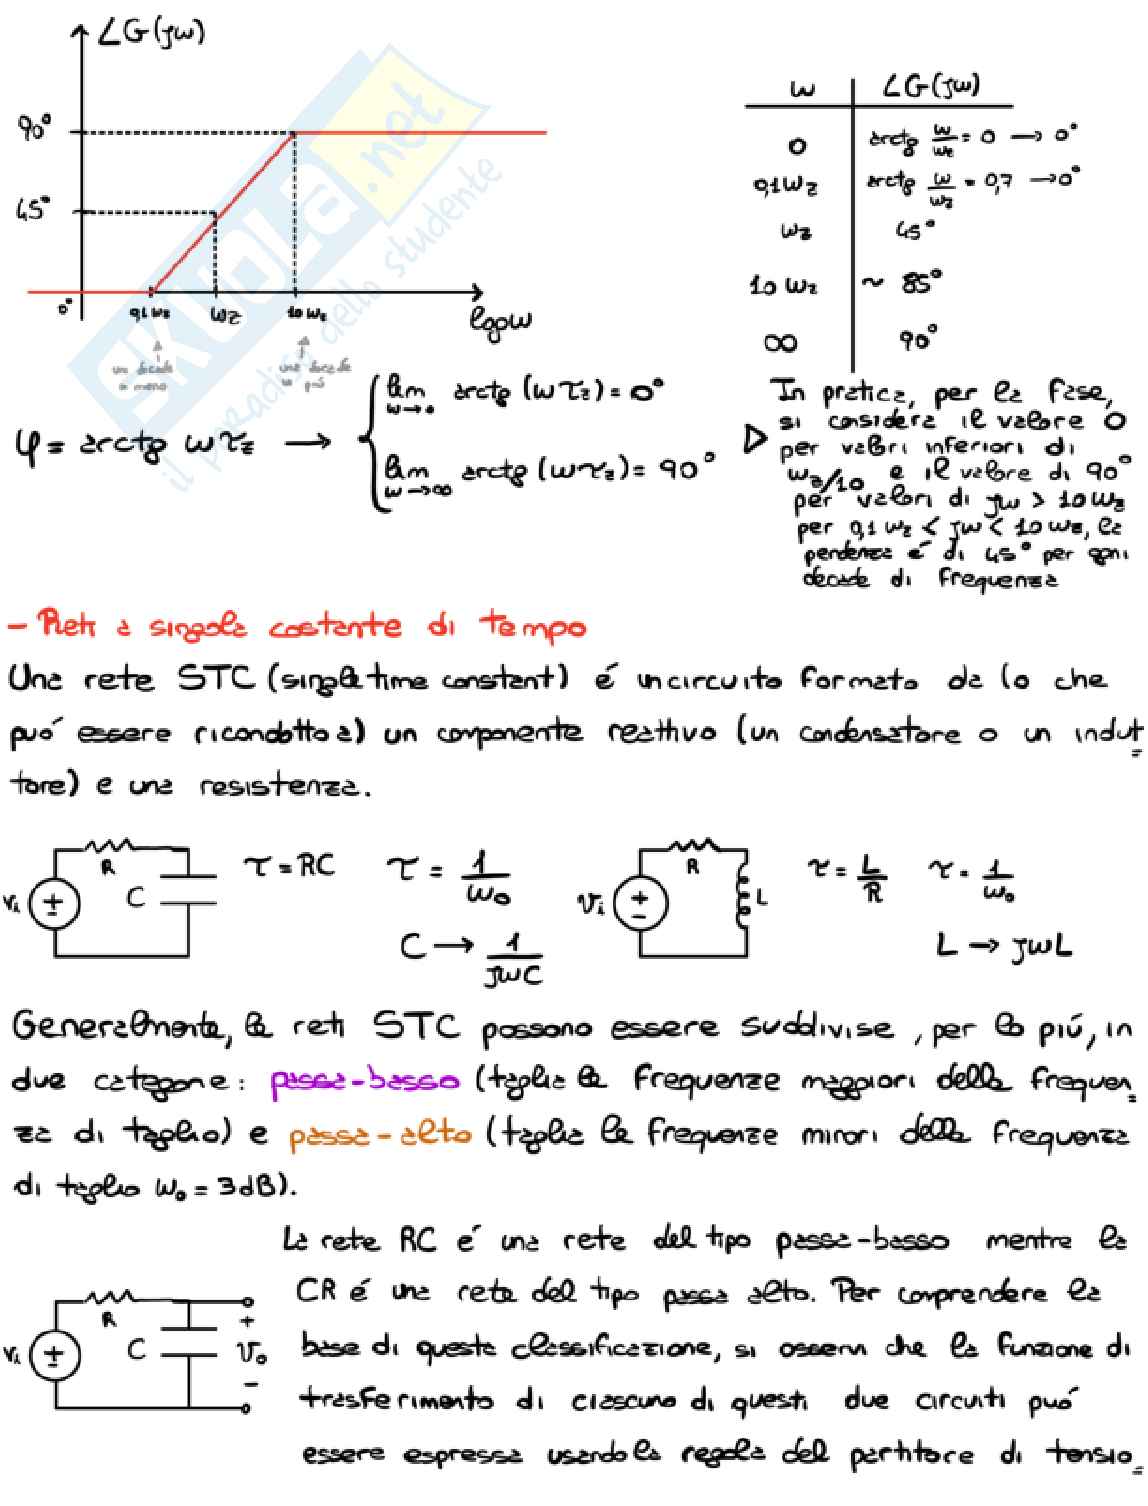 ∠G(jω)
90°
45°
0°
0,1 ωz
ωz
10 ωz
logω
una decade in meno
una decade in piú
ω ∠G(jω)
0 arctg ω/ωz = 0 → 0°
0,1ωz arctg ω/ωz = 0,7 → 0°
ωz 45°
10 ωz ~ 85°
∞ 90°
φ = arctg ωτz →
lim ω→0 arctg (ωτz) = 0°
lim ω→∞ arctg (ωτz) = 90°
In pratica, per la fase,
si considera il valore 0
per valori inferiori di
ωz/10 e il valore di 90°
per valori di jω > 10ωz
per 0,1 ωz < jω < 10 ωz, la
pendenza é di 45° per ogni
decade di frequenza
SKUOLA.net
il paradiso dello studente
- Reti a singola costante di tempo
Una rete STC (single time constant) é un circuito formato da (o che
puó essere ricondotto a) un componente reattivo (un condensatore o un indut=
tore) e una resistenza.
vi R C τ = RC τ = 1/ω0
C → 1/jωC
vi R L τ = L/R τ = 1/ω0
L → jωL
Generalmente, le reti STC possono essere suddivise, per lo piú, in
due categorie: passa-basso (taglia le frequenze maggiori della frequen=
za di taglio) e passa-alto (taglia le frequenze minori della frequenza
di taglio ω0 = 3dB).
vi R C + vo -
La rete RC é una rete del tipo passa-basso mentre la
CR é una rete del tipo passa alto. Per comprendere la
base di questa classificazione, si osservi che la funzione di
trasferimento di ciascuno di questi due circuiti puó
essere espressa usando la regola del partitore di tensio=